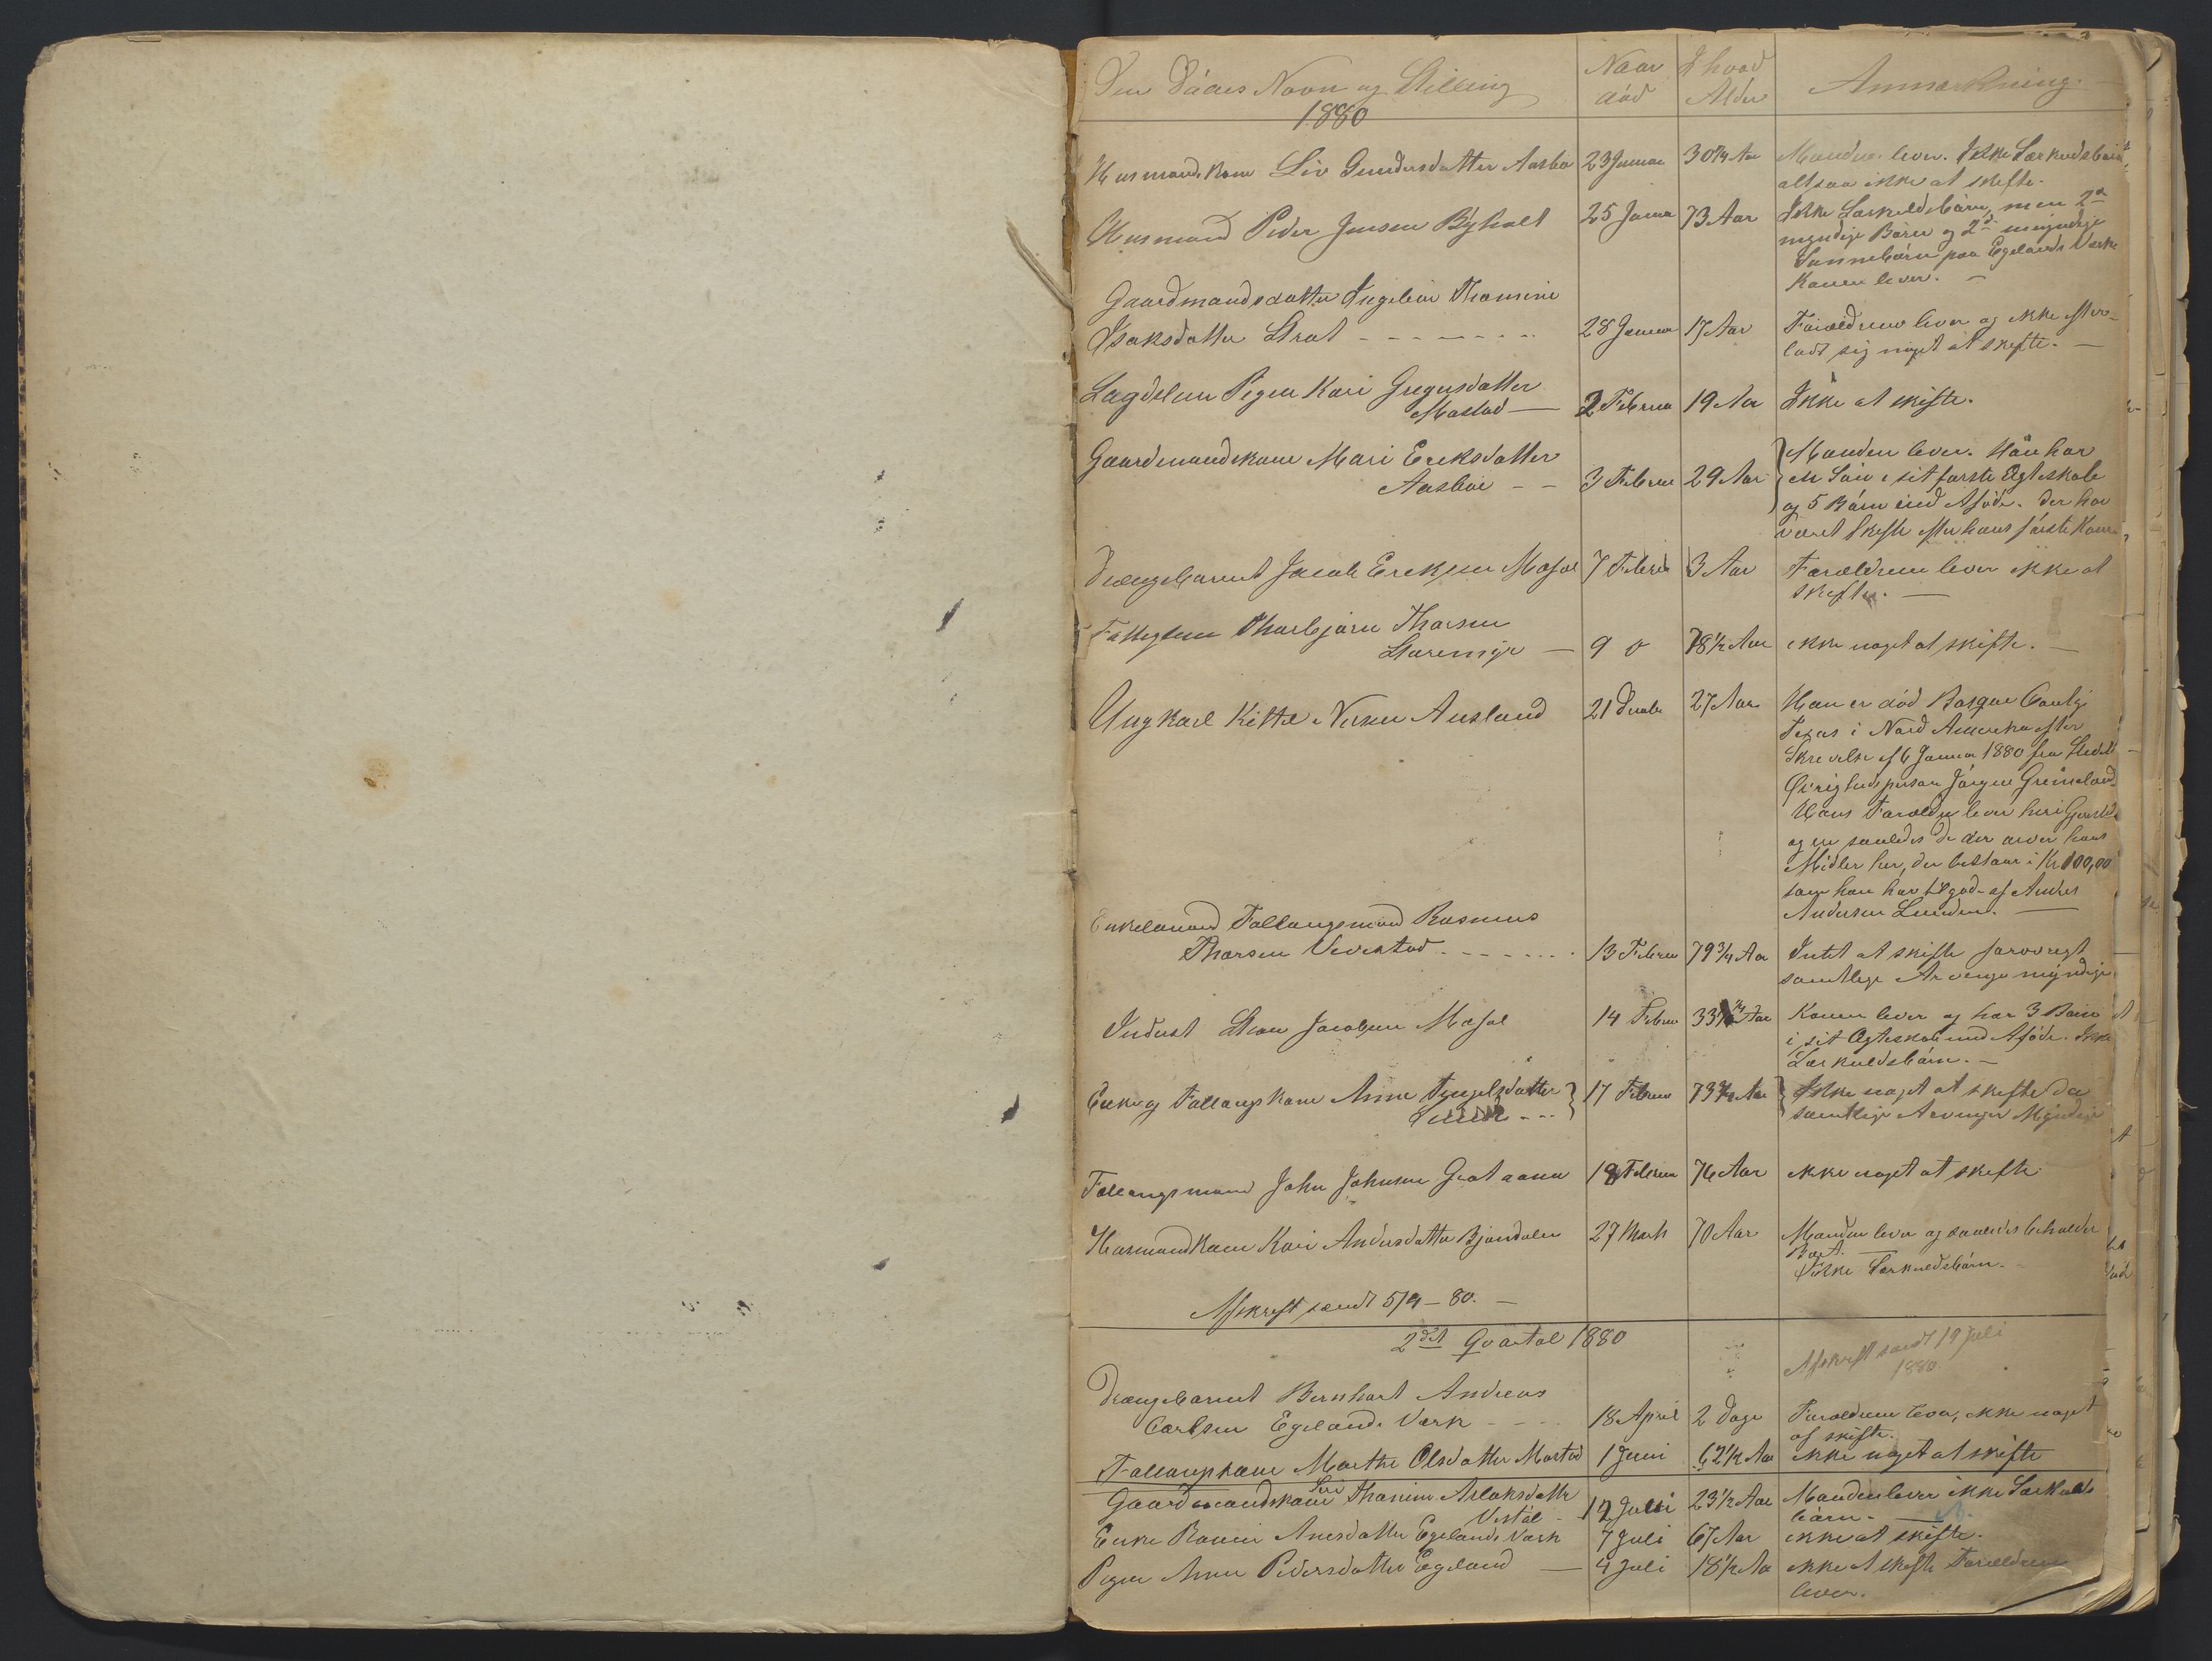 Den Dödes Navn og Stilling
Naar död
I hvad Alder
Anmærkning.
1880
Husmandskone Liv Gundersdatter Aasbø 23 Januar 30¾ Aar Manden lever. Ikke Særkuldsbørn
altsaa ikke at skifte.
Husmand Peder Jensen Byholt 25 Januar 73 Aar Ikke Særkuldsbørn, men 2de
myndige Børn og 2de umyndige
Sønnebørn paa Egelands Værk
Konen lever. —
Gaardmandsdatter Ingebør Thomine
Isaksdatter Strat - - - - - - - 28 Januar 17 Aar Forældrene lever og ikke efter-
ladt sig noget at skifte. —
Lægdslem Pigen Kari Gregersdatter
Mostad — 2 Februar 19 Aar Ikke at skifte.
Gaardmandskone Mari Eriksdatter
Aasbøe - - 3 Februar 29 Aar
Manden lever. Han har
en Søn i sit første Ægteskab
og 5 Börn med Afdöde. Der har
været Skifte efter hans förste Kone
Drengebarnet Jacob Eriksen Mosjøl 7 Februar 3 Aar Forældrene lever ikke at
skifte. —
Fattiglem Thorbjørn Thorsen
Støremyr — 9 d 78½ Aar ikke noget at skifte. —
Ungkarl Kittel Nilsen Ausland 21 Decbr 27 Aar Han er död Bosque County
Texas i Nord Amerika efter
Skrivelse af 6 Januar 1880 fra Stedets
Øvrighedsperson Jörgen Grimeland
Hans Forældre lever her i Gjerstad
og er saaledes de der arver hans
Midler her, der bestaar i Kr 100,00
som han har tilgode af Anders
Andersen Lunden. —
Enkemand Follaugsmand Rasmus
Thorsen Vevestad - - - - - - - 13 Februar 79¾ Aar Intet at skifte forøvrigt
samtlige Arvinger myndige
Inderst Stian Jacobsen Mosjøl 14 Februar 33 Aar Konen lever og har 3 Børn
i sit Ægteskab med Afdöde. Ikke
Særkuldsbørn. —
Enke og Follaugskone Anne Tengelsdatter
17 Februar 73¾ Aar Ikke noget at skifte da
samtlige Arvinger Myndige
Follaugsmand John Johnsen Grotaaen 18 Februar 76 Aar ikke noget at skifte
Husmandkone Kari Andersdatter Bjondalen 27 Marts 70 Aar Manden lever og saaledes beholder
Boet.
Ikke Særkuldsbørn.
Afskrift sendt 5/4 — 80. —
2det Qvartal 1880
Afskrift sendt 19 Juli
1880.
Drengebarnet Bernhart Andreas
Carlsen Egelands Værk - - - 18 April 2 Dage Forældrene lever, ikke noget
at skifte.
Follaugskone Marthe Olsdatter Mostad 1 Juni 62½ Aar ikke noget at skifte
Gaardmandskone Siri Thomine Aslaksdatter
Vestøl - 12 Juli 23½ Aar Manden lever ikke Særkulds
børn. —
Enke Ronni Anesdatter Egelands Værk 7 Juli 67 Aar ikke at skifte.
Pigen Anne Pedersdatter Egeland — 4 Juli 18½ Aar ikke at skifte Forældrene
lever.